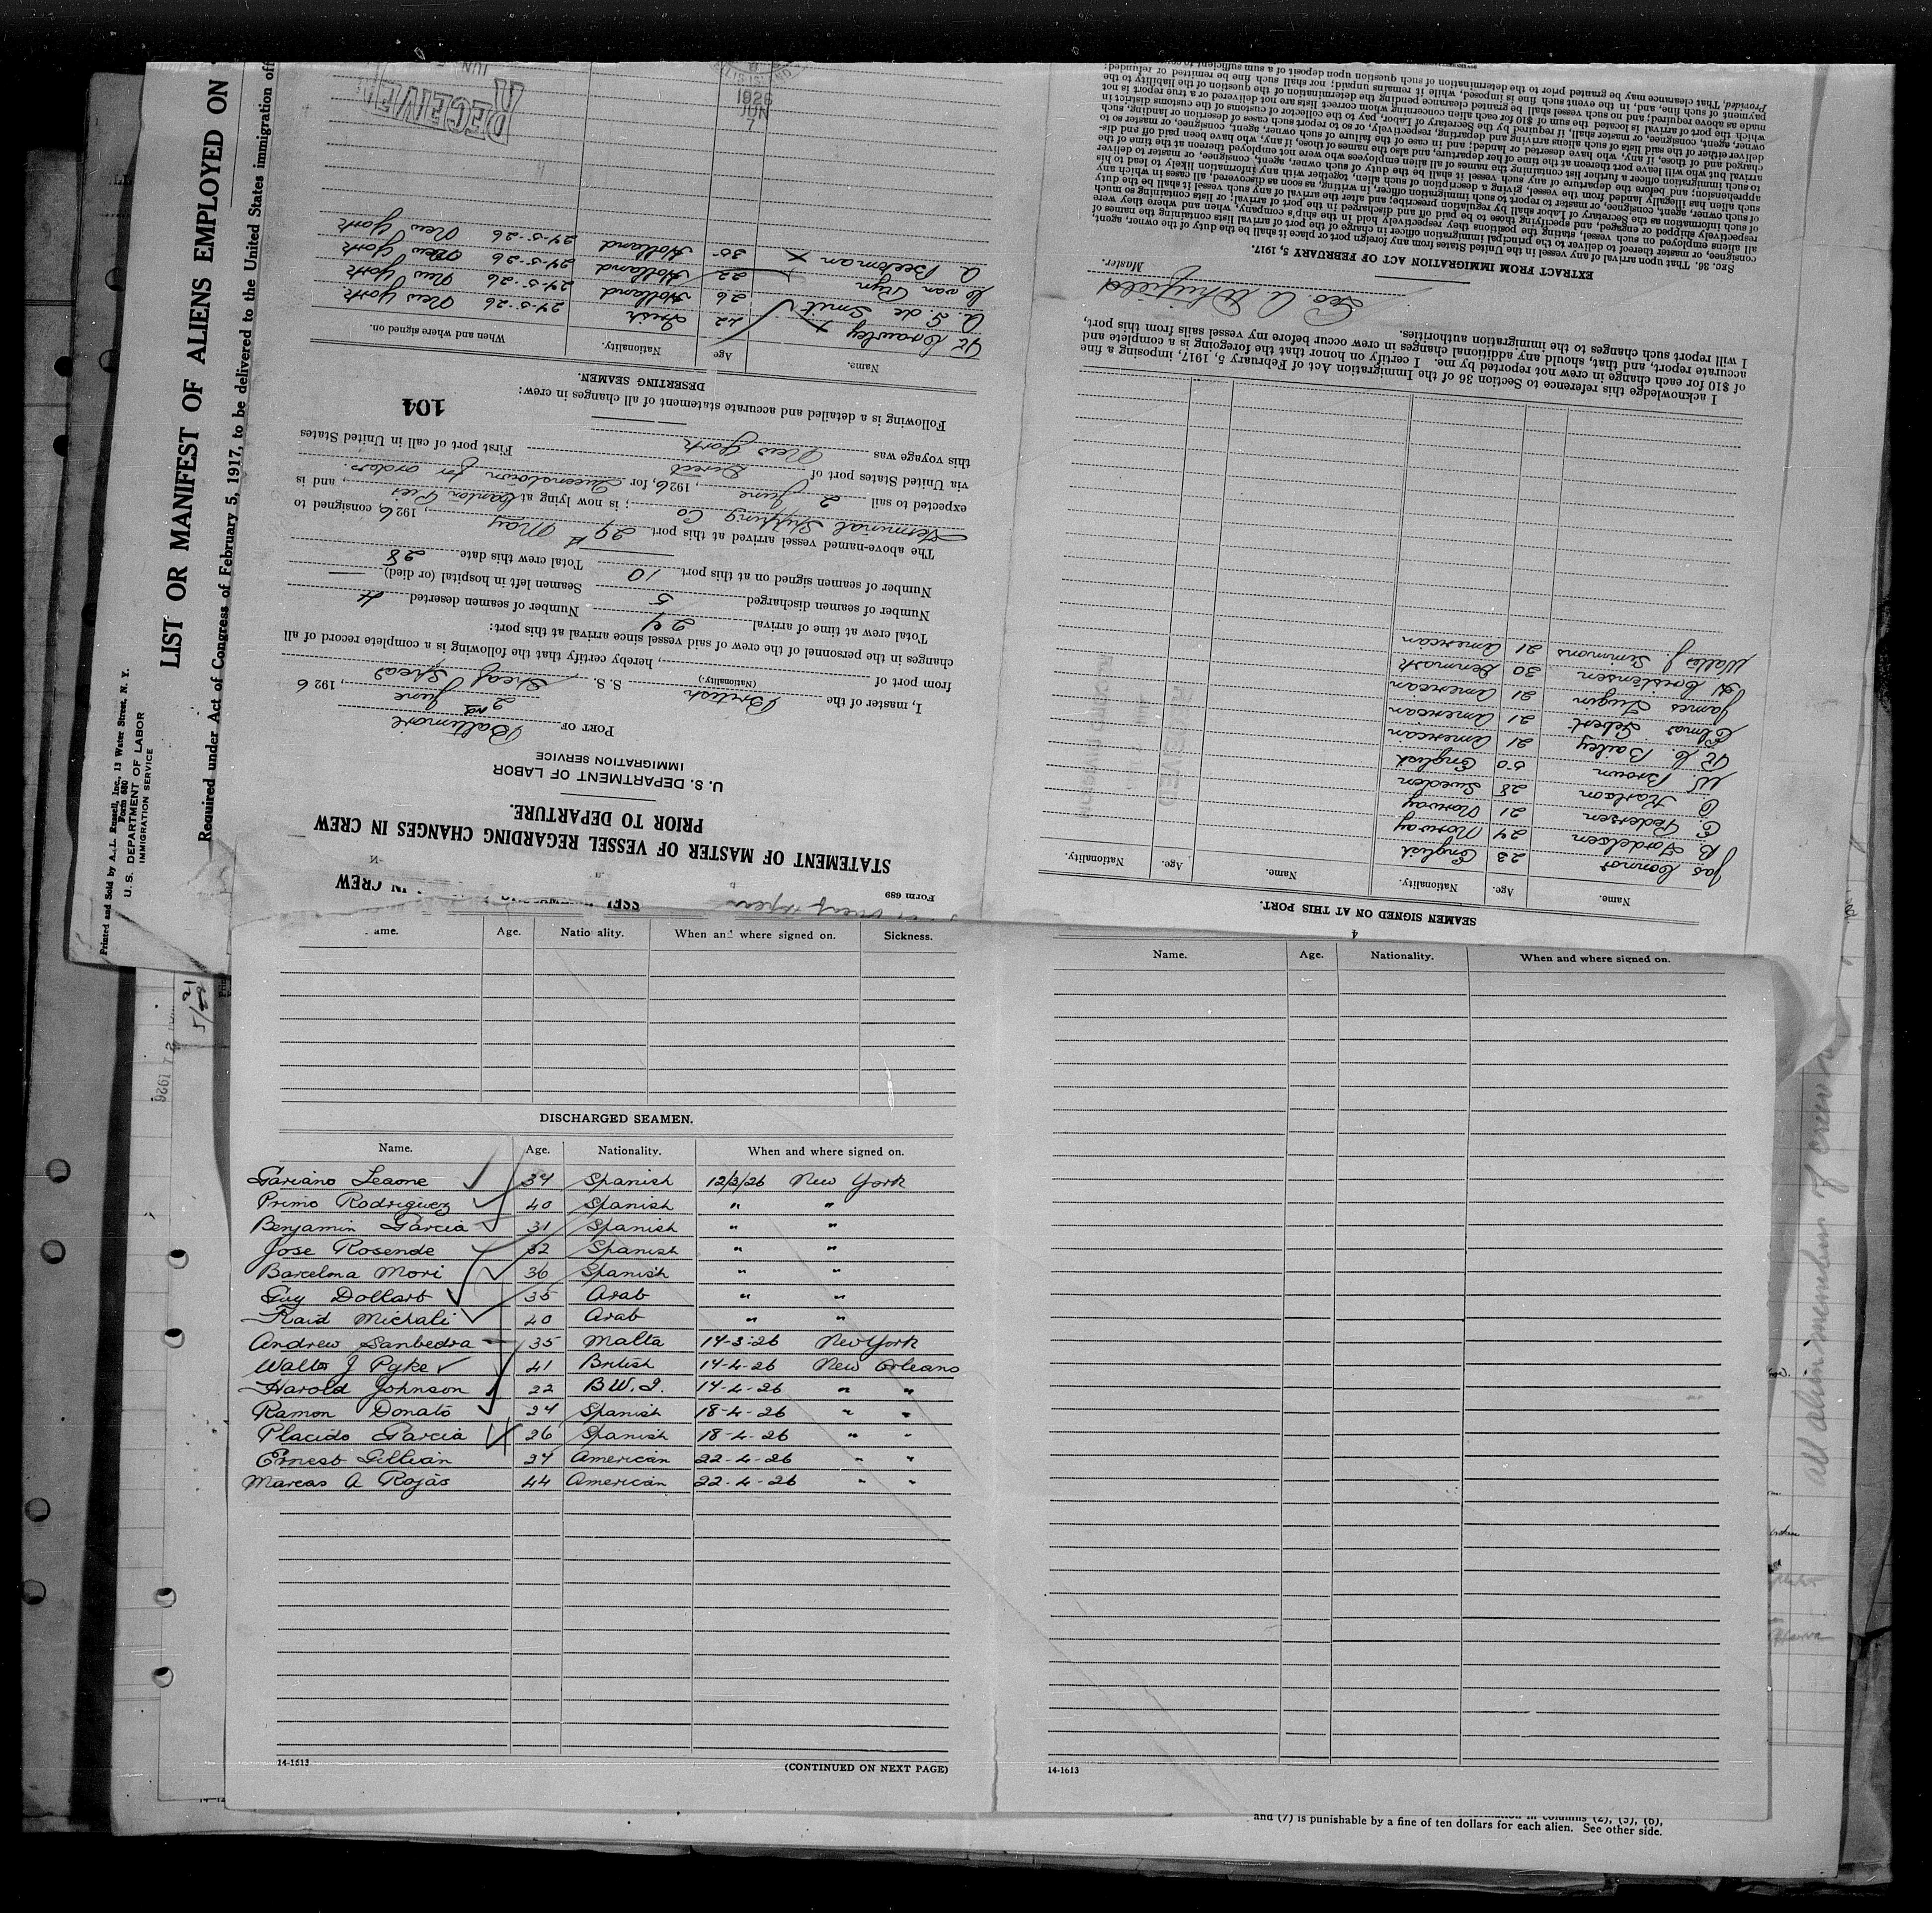 Printed and Sold by A. L. Russell, Inc., 13 Water Street, N. Y.
Form 680
U. S. DEPARTMENT OF LABOR
IMMIGRATION SERVICE
LIST OR MANIFEST OF ALIENS EMPLOYED ON
Required under Act of Congress of February 5, 1917, to be delivered to the United States immigration off
Form 689
STATEMENT OF MASTER OF VESSEL REGARDING CHANGES IN CREW
PRIOR TO DEPARTURE.
U. S. DEPARTMENT OF LABOR
IMMIGRATION SERVICE
PORT OF Baltimore
2nd June, 1926
I, master of the British S. S. Sheaf Spear
(Nationality.)
from port of , hereby certify that the following is a complete record of all
changes in the personnel of the crew of said vessel since arrival at this port:
Total crew at time of arrival 27 Number of seamen deserted 4
Number of seamen discharged 5 Seamen left in hospital (or died) —
Number of seamen signed on at this port 10 Total crew this date 28
The above-named vessel arrived at this port 29th May, 1926, consigned to
Terminal Shipping Co; is now lying at Canton Pier, and is
expected to sail 2 June, 1926, for Queenstown for orders.
via United States port of Direct First port of call in United States
this voyage was New York
Following is a detailed and accurate statement of all changes in crew:
104
DESERTING SEAMEN.
Name. Age Nationality. When and where signed on.
Crawley 42 Irish 27-5-26 New York
A. G. de Smit 26 Holland 27-5-26 New York
van Ryn 22 Holland 27-5-26 New York
A Beekman 30 Holland 27-5-26 New York
1926
JUN
7
RECEIVED
JUN
SEAMEN SIGNED ON AT THIS PORT.
Name. Age. Nationality. Name. Age. Nationality.
Jas Connor 23 English
B Tordelsen 24 Norway
E. Pedersen 21 Norway
O. Karlson 28 Sweden
W Brown 50 English
Bailey 21 American
Elmer Gebert 21 American
James Dugan 21 American
Carstensen 30 Denmark
Walter J. Simmons 21 American
I acknowledge this reference to Section 36 of the Immigration Act of February 5, 1917, imposing a fine
of $10 for each change in crew not reported by me. I certify on honor that the foregoing is a complete and
accurate report, and that, should any additional changes in crew occur before my vessel sails from this port,
I will report such changes to the immigration authorities.
Geo. A. Whifield
Master.
EXTRACT FROM IMMIGRATION ACT OF FEBRUARY 5, 1917.
SEC. 36. That upon arrival of any vessel in the United States from any foreign port or place it shall be the duty of the owner, agent,
consignee, or master thereof to deliver to the principal immigration officer in charge of the port of arrival lists containing the names of
all aliens employed on such vessel, stating the positions they respectively hold in the ship's company, when and where they were
respectively shipped or engaged, and specifying those to be paid off and discharged in the port of arrival; or lists containing so much
of such information as the Secretary of Labor shall by regulation prescribe; and after the arrival of any such vessel it shall be the duty
of such owner, agent, consignee, or master to report to such immigration officer, in writing, as soon as discovered, all cases in which any
such alien has illegally landed from the vessel, giving a description of such alien, together with any information likely to lead to his
apprehension; and before the departure of any such vessel it shall be the duty of such owner, agent, consignee, or master to deliver
to such immigration officer a further list containing the names of all alien employees who were not employed thereon at the time of the
arrival but who will leave port thereon at the time of her departure, and also the names of those, if any, who have been paid off and dis-
charged and of those, if any, who have deserted or landed; and in case of the failure of such owner, agent, consignee, or master so to
deliver either of the said lists of such aliens arriving and departing, respectively, or so to report such cases of desertion or landing, such
owner, agent, consignee, or master shall, if required by the Secretary of Labor, pay to the collector of customs of the customs district in
which the port of arrival is located the sum of $10 for each alien concerning whom correct lists are not delivered or a true report is not
made as above required; and no such vessel shall be granted clearance pending the determination of the question of the liability to the
payment of such fine, and, in the event such fine is imposed, while it remains unpaid; nor shall such fine be remitted or refunded:
Provided, That clearance may be granted prior to the determination of such question upon deposit of a sum sufficient to
ame. Age. Natio ality. When and where signed on. Sickness.
Name. Age. Nationality. When and where signed on.
DISCHARGED SEAMEN.
Name. Age. Nationality. When and where signed on.
Gariano Leaone 34 Spanish 12/3/26 New York
Primo Rodriguez 40 Spanish " "
Benjamin Garcia 31 Spanish " "
Jose Rosende 32 Spanish " "
Barcelona Mori 36 Spanish " "
Guy Dollarb 35 Arab " "
Raid Michali 40 Arab " "
Andrew Sanbedra 35 Malta 14-3-26 New York
Walter J Pyke 41 British 14-4-26 New Orleans
Harold Johnson 22 B.W.I. 14-4-26 " "
Ramon Donato 24 Spanish 18-4-26 " "
Placido Garcia 26 Spanish 18-4-26 " "
Ernest Gillian 27 American 22-4-26 " "
Marcas A Rojas 44 American 22-4-26 " "
14-1613
(CONTINUED ON NEXT PAGE)
14-1613
and (7) is punishable by a fine of ten dollars for each alien. See other side.
all alien members of crew